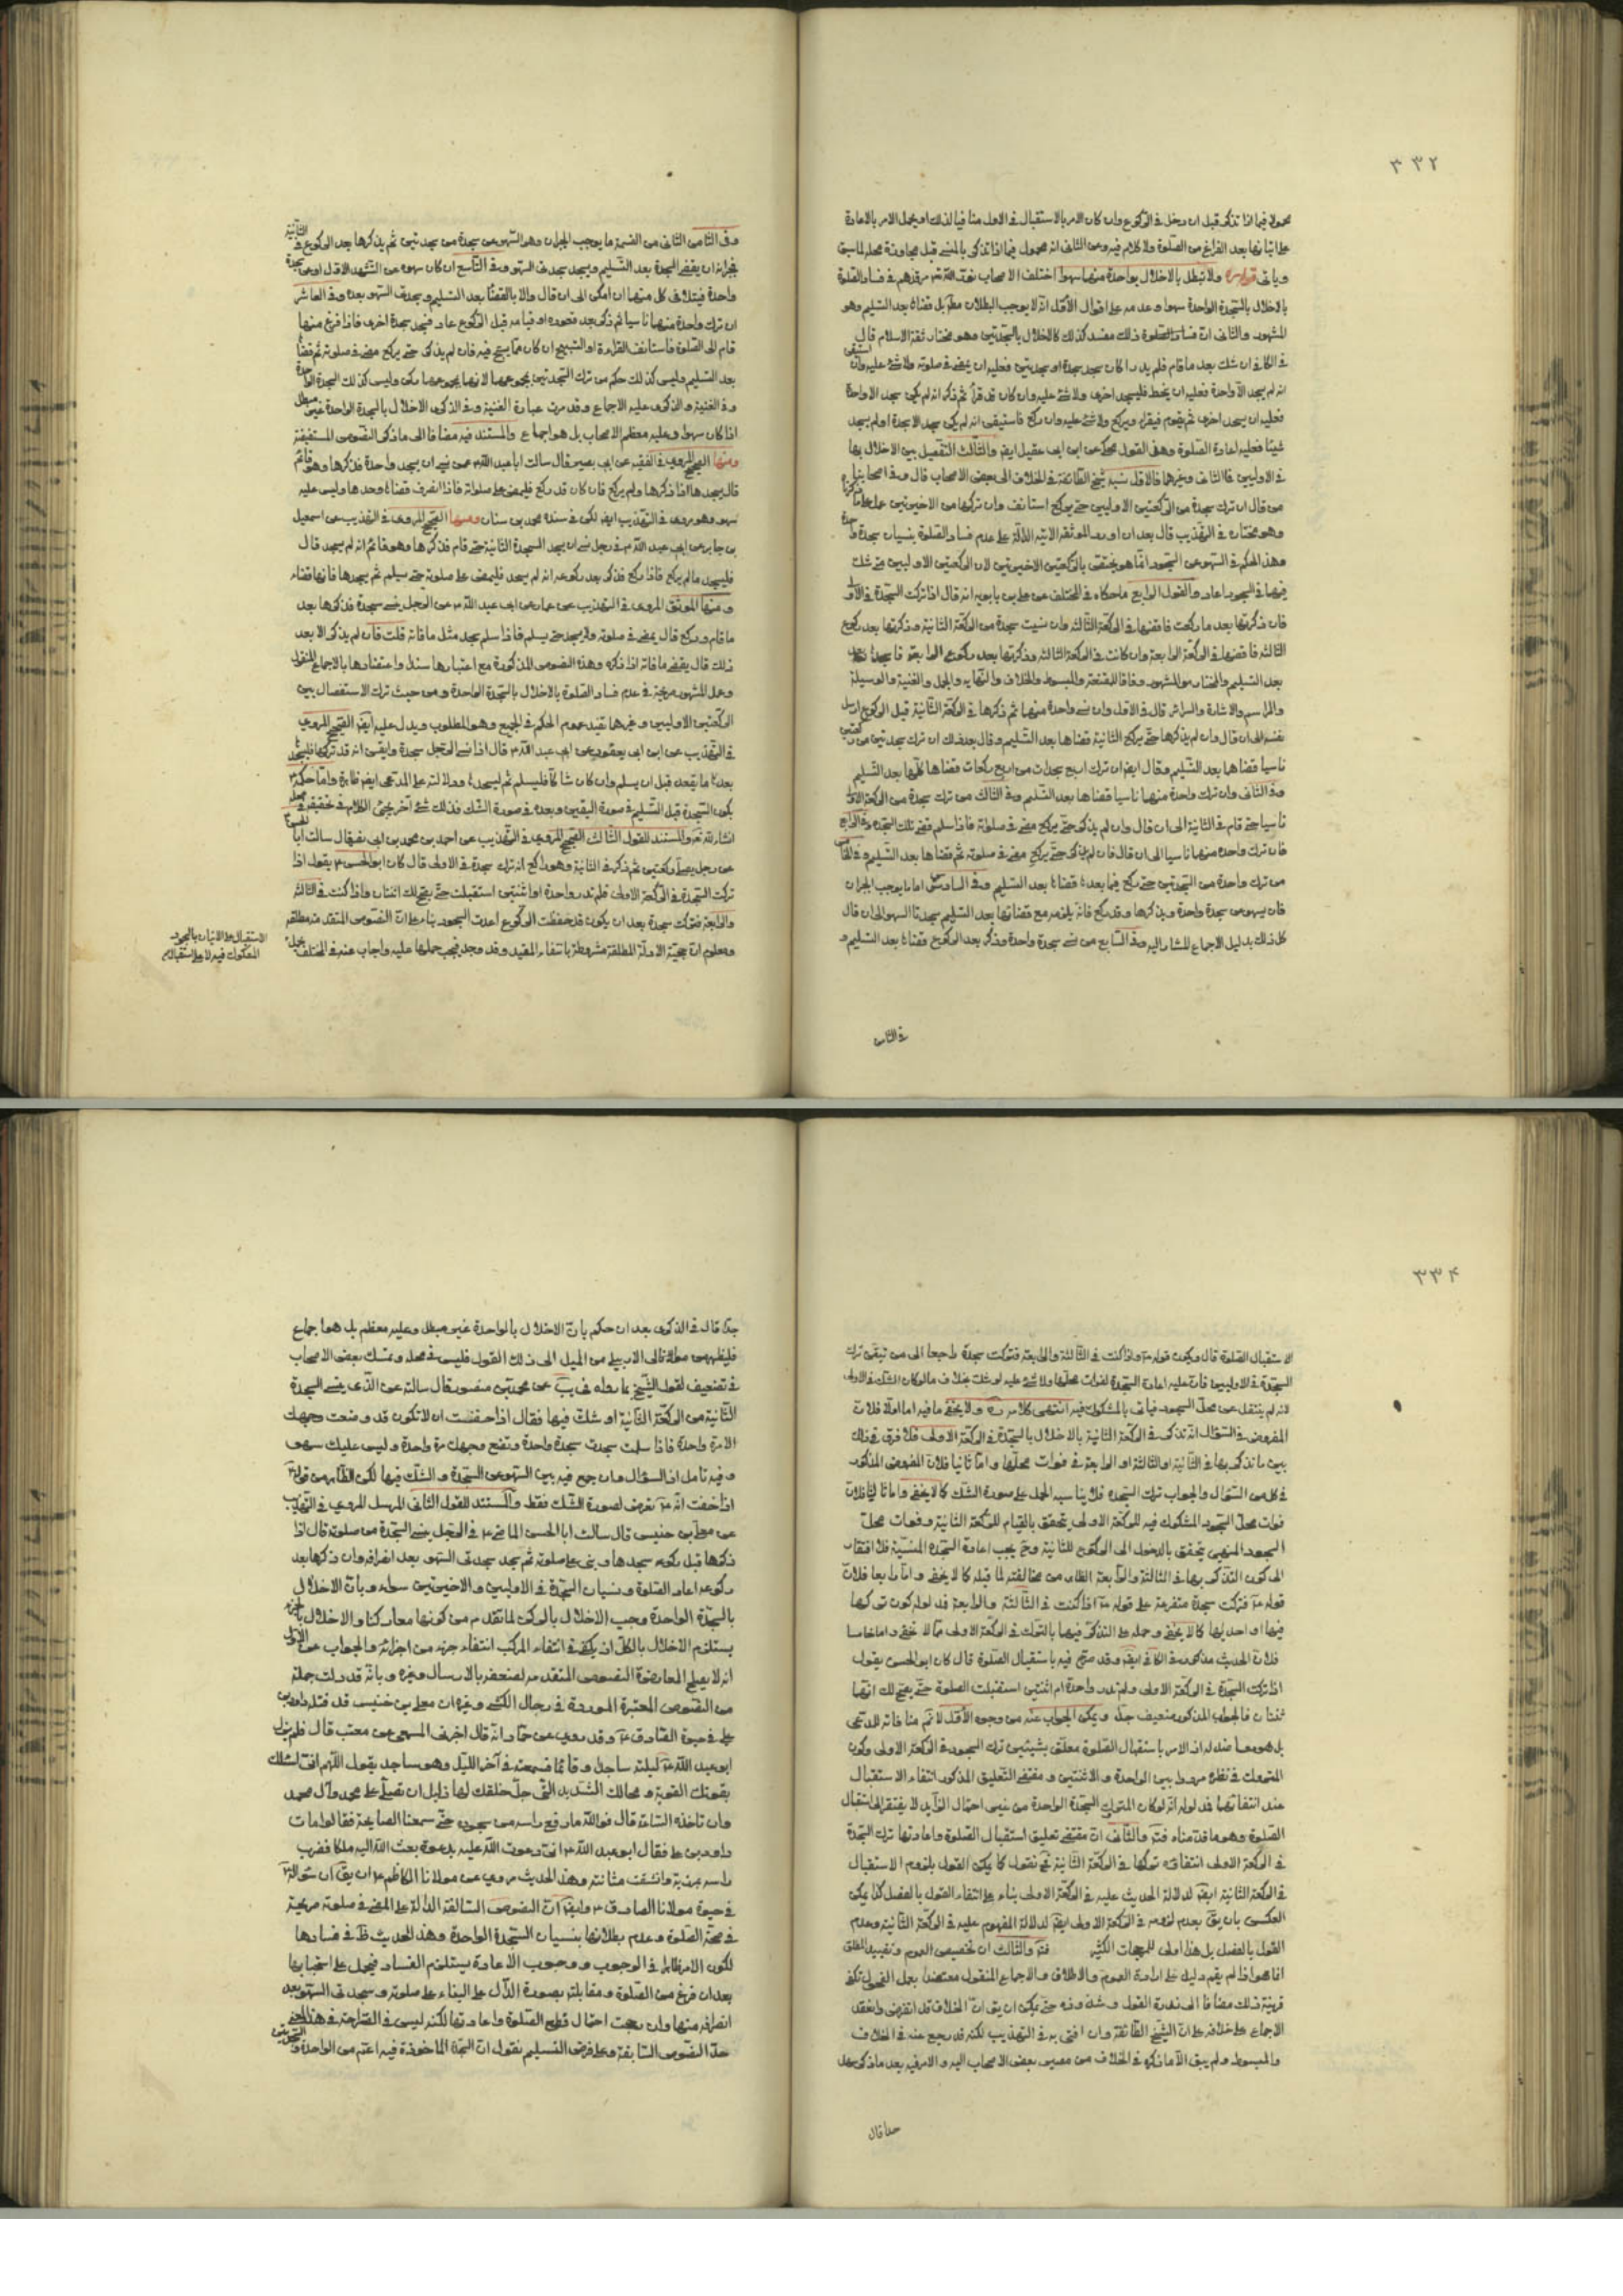 ٣٣٢
محمولا فيما اذا تذكر قبل ان دخل في الركوع وان كان الامر بالاستقبال في الاول منافيا لذلك او يحمل الامر بالاعادة
على اتيانها بعد الفراغ من الصلوة ولا كلام فيه وعن الثاني انه محمول فيما اذا تذكر بالمنسي قبل مجاوزة محله لما سبق
وياتي قوله ولا تبطل بالاخلال بواحدة منهما سهوا اختلف الاصحاب في فساد الصلوة
بالاخلال بالسجدة الواحدة سهوا وعدمه على اقوال الاول انه لا يوجب البطلان مط بل قضائه بعد التسليم وهو
المشهور والثاني ان فساد الصلوة ذلك مفسد كذلك كالاخلال بالسجدتين وهو مختار ثقة الاسلام قال
في الكافي ان شك بعد ما قام فلم يدر اكان سجد سجدة او سجدتين فعليه ان يمضي في صلوته ولا شئ عليه وان استيقن
انه لم يسجد الا واحدة فعليه ان ينحط فيسجد اخرى ولا شئ عليه وان كان قد قرأ ثم ذكر انه لم يكن سجد الا واحدة
فعليه ان يسجد اخرى ثم يقوم فيقرأ ويركع ولا شئ عليه وان ركع فاستيقن انه لم يكن سجد الا سجدة او لم يسجد
شيئا فعليه اعادة الصلوة وهذا القول محكي عن ابن ابي عقيل ايضا والثالث التفصيل بين الاخلال بها
في الاوليين فالثاني وغيرهما فالاول نسبه شيخ الطائفة في الخلاف الى بعض الاصحاب قال وفي اصحابنا
من قال ان ترك سجدة من الركعتين الاوليين حتى يركع استانف وان تركها من الاخيرتين عمل على ما ذكرنا
وهو مختاره في التهذيب قال بعد ان اورد الموثقة الاتية الدالة على عدم فساد الصلوة بنسيان سجدة واحدة
وهذا الحكم في السهو عن السجود انما هو يختص بالركعتين الاخيرتين لان الركعتين الاوليين متى شك
فيهما في السجود اعاد والقول الرابع ما حكاه في المختلف عن علي بن بابويه انه قال اذا تركت السجدة في الاولى
فان ذكرتها بعد ما ركعت فاقضها في الركعة الثالثة وان نسيت سجدة من الركعة الثانية وذكرتها بعد ركوع
الثالثة فاقضها في الركعة الرابعة وان كانت في الركعة الثالثة وذكرتها بعد ركوع الرابعة فاسجدها
بعد التسليم والمختار هو المشهور وفاقا للمقنعة والمبسوط والخلاف والنهاية والجمل والغنية والوسيلة
والمراسم والاشارة والسرائر قال في الاول وان نسي واحدة منهما ثم ذكرها في الركعة الثانية قبل الركوع ارسل
نفسه الى ان قال وان لم يذكرها حتى يركع الثانية قضاها بعد التسليم وقال بعد ذلك ان ترك سجدتين من ركعتين
ناسيا قضاهما بعد التسليم وقال ايضا ان ترك اربع سجدات من اربع ركعات قضاها كلها بعد التسليم
وفي الثاني وان ترك واحدة منهما ناسيا قضاها بعد التسليم وفي الثالث من ترك سجدة من الركعة الاولى
ناسيا حتى قام في الثانية الى ان قال وان لم يذكر حتى يركع مضى في صلوته فاذا سلم قضى تلك السجدة وفي الرابع
فان ترك واحدة منهما ناسيا الى ان قال فان لم يذكر حتى يركع مضى في صلوته ثم قضاها بعد التسليم وفي الخامس
من ترك واحدة من السجدتين حتى ركع فيما بعدها قضاها بعد التسليم وفي السادس اما ما يوجب الجبران
فان يسهو عن سجدة واحدة ويذكرها وقد ركع فانه يلزمه مع قضائها بعد التسليم سجدتا السهو الى ان قال
كل ذلك بدليل الاجماع المشار اليه وفي السابع من نسي سجدة واحدة وذكر بعد الركوع قضاها بعد التسليم و
في الثامن
وفي الثامن الثاني من القسمة ما يوجب الجبران وهو السهو عن سجدة من سجدتين ثم يذكرها بعد الركوع في الثانية
فجبرانه ان يقضي السجدة بعد التسليم ويسجد سجدتي السهو وفي التاسع ان كان سهوه عن التشهد الاول او عن سجدة
واحدة فيتلافى كل منهما ان امكن الى ان قال والا بالقضاء بعد التسليم وسجدتي السهو بعده وفي العاشر
ان ترك واحدة منهما ناسيا ثم ذكر بعد قعوده او قيامه قبل الركوع عاد فسجد سجدة اخرى فاذا فرغ منها
قام الى الصلوة فاستانف القراءة او التسبيح ان كان مما يسبح فيه فان لم يذكر حتى يركع مضى في صلوته ثم قضاها
بعد التسليم وليس كذلك حكم من ترك السجدتين بمجموعهما لانهما بمجموعهما ركن وليس كذلك السجدة الواحدة
وفي الغنية والذكرى عليه الاجماع وقد مرت عبارة الغنية وفي الذكرى الاخلال بالسجدة الواحدة غير مبطل
اذا كان سهوا وعليه معظم الاصحاب بل هو اجماع والمستند فيه مضافا الى ما ذكر النصوص المستفيضة
ومنها الصحيح المروي في الفقيه عن ابي بصير قال سالت ابا عبد الله عمن نسي ان يسجد واحدة فذكرها وهو قائم
قال يسجدها اذا ذكرها ولم يركع فان كان قد ركع فليمض على صلوته فاذا انصرف قضاها وحدها وليس عليه
سهو وهو مروي في التهذيب ايضا لكن في سنده محمد بن سنان ومنها الصحيح المروي في التهذيب عن اسمعيل
بن جابر عن ابي عبد الله في رجل نسي ان يسجد السجدة الثانية حتى قام فذكرها وهو قائم انه لم يسجد قال
فليسجد ما لم يركع فاذا ركع فذكر بعد ركوعه انه لم يسجد فليمض على صلوته حتى يسلم ثم يسجدها فانها قضاء
ومنها الموثق المروي في التهذيب عن عمار عن ابي عبد الله عن الرجل نسي سجدة فذكرها بعد
ما قام وركع قال يمضي في صلوته ولا يسجد حتى يسلم فاذا سلم سجد مثل ما فاته قلت فان لم يذكر الا بعد
ذلك قال يقضي ما فاته اذا ذكره وهذه النصوص المذكورة مع اعتبارها سندا واعتضادها بالاجماع المنقول
وعمل المشهور صريحة في عدم فساد الصلوة بالاخلال بالسجدة الواحدة ومن حيث ترك الاستفصال بين
الركعتين الاوليين وغيرهما يفيد عموم الحكم في الجميع وهو المطلوب ويدل عليه ايضا الصحيح المروي
في التهذيب عن ابن ابي يعفور عن ابي عبد الله قال اذا نسي الرجل سجدة وايقن انه قد تركها فليسجد
بعد ما يقعد قبل ان يسلم وان كان شاكا فليسلم ثم ليسجد ودلالته على المدعى ايضا ظاهرة واما حكمه
بكون السجدة قبل التسليم في صورة اليقين وبعده في صورة الشك فذلك شئ آخر يجئ الكلام في تحقيقه في محله
انشاء الله تعالى والمستند للقول الثالث الصحيح المروي في التهذيب عن احمد بن محمد بن ابي نصر قال سالت ابا الحسن
عن رجل يصلي ركعتين ثم ذكر في الثانية وهو راكع انه ترك سجدة في الاولى قال كان ابو الحسن يقول اذا
تركت السجدة في الركعة الاولى فلم تدر واحدة او اثنتين استقبلت حتى يصح لك اثنتان واذا كنت في الثالثة
والرابعة فتركت سجدة بعد ان يكون قد حفظت الركوع اعدت السجود بناء على ان النصوص المتقدمة مطلقة
ومعلوم ان حجية الادلة المطلقة مشروطة بانتفاء المقيد وقد وجد فيجب حملها عليه واجاب عنه في المختلف بحمل
الاستقبال على الاتيان بالسجود
المشكوك فيه لا على استقبال
٣٣٤
الاستقبال الصلوة قال ويكون قوله واذا كنت في الثالثة والرابعة فتركت سجدة راجعا الى من تيقن ترك
السجدة في الاوليين فان عليه اعادة السجدة لفوات محلها ولا شئ عليه لو شك بخلاف ما لو كان الشك في الاولى
لانه لم ينتقل عن محل السجود فياتي بالمشكوك فيه انتهى كلامه ولا يخفى ما فيه اما اولا فلان
المفروض في السؤال انه تذكر في الركعة الثانية بالاخلال بالسجدة في الركعة الاولى فلا فرق في ذلك
بين ما تذكر بها في الثانية او الثالثة او الرابعة في فوات محلها واما ثانيا فلان المفروض المذكور
في كل من السؤال والجواب ترك السجدة فلا يناسبه الحمل على صورة الشك كما لا يخفى واما ثالثا فلان
فوات محل السجود المشكوك فيه للركعة الاولى يتحقق بالقيام للركعة الثانية وفوات محل
السجود المنسي يتحقق بالدخول الى الركوع للثانية وح يجب اعادة السجدة المنسية فلا افتقار
الى كون التذكر بها في الثالثة والرابعة الظاهر من مخالفته لما قبله كما لا يخفى واما رابعا فلان
قوله فتركت سجدة متفرعة على قوله اذا كنت في الثالثة والرابعة قد لوله كون تركها
فيهما او احديهما كما لا يخفى وحمله على التذكر فيهما بالترك في الركعة الاولى مما لا يخفى واما خامسا
فلان الحديث مذكور في الكافي ايضا وقد صرح فيه باستقبال الصلوة قال كان ابو الحسن يقول
اذا تركت السجدة في الركعة الاولى ولم تدر واحدة ام اثنتين استقبلت الصلوة حتى يصح لك انهما
ثنتان فالجواب المذكور ضعيف جدا ويمكن الجواب عنه من وجوه الاول لا نم منافاته للمدعى
بل هو معاضد له اذ الامر باستقبال الصلوة معلق بشيئين ترك السجود في الركعة الاولى وكون
المتروك في نظره مرددا بين الواحدة والاثنتين ومقتضى التعليق المذكور انتفاء الاستقبال
عند انتفائهما فمدلوله انه لو كان المتروك السجدة الواحدة من غير احتمال الزايد لا يفتقر الى استقبال
الصلوة وهو ما قدمناه فتم والثاني ان مقتضى تعليق استقبال الصلوة واعادتها ترك السجدة
في الركعة الاولى انتفائه تركها في الركعة الثانية ثم نقول كما يمكن القول بلزوم الاستقبال
في الركعة الثانية ايضا لدلالة الحديث عليه في الركعة الاولى بناء على انتفاء القول بالفصل كذا يمكن
العكس بان يقال بعدم لزومه في الركعة الاولى ايضا لدلالة المفهوم عليه في الركعة الثانية وعدم
القول بالفصل بل هذا اولى للمرجحات الكثيرة فتم والثالث ان تخصيص العموم وتقييد المطلق
انما هو اذا لم يقم دليل على ارادة العموم والاطلاق والاجماع المنقول معتضدا بعمل الفحول تكفي
قرينة ذلك مضافا الى ندرة القول وشذوذه حتى يمكن ان يقال ان الخلاف قد انقرض وانعقد
الاجماع على خلافه على ان الشيخ الطائفة وان افتى به في التهذيب لكنه قد رجع عنه في الخلاف
والمبسوط ولم يبق الا ما ذكره في الخلاف من مصير بعض الاصحاب اليه والامر فيه بعد ما ذكر سهل
جدا قال
جدا قال في الذكرى بعد ان حكم بان الاخلال بالواحدة غير مبطل وعليه معظم بل هو اجماع
فليظهر من مولانا الاردبيلي من الميل الى ذلك القول فليس في محله وتمسك بعض الاصحاب
في تضعيف لقول الشيخ بما رواه في يب عن محمد بن منصور قال سالته عن الذي ينسى السجدة
الثانية من الركعة الثانية او شك فيها فقال اذا خفت ان لا تكون قد وضعت وجهك
الا مرة واحدة فاذا سلمت سجدت سجدة واحدة وتضع وجهك مرة واحدة وليس عليك سهو
وفيه تامل اذ السؤال وان جمع فيه بين السهو عن السجدة والشك فيها لكن الظاهر من قوله
اذا خفت انه تعرض لصورة الشك فقط والمستند للقول الثاني المرسل المروي في التهذيب
عن معلى بن خنيس قال سالت ابا الحسن الماضي في الرجل ينسى السجدة من صلوته قال اذا
ذكرها قبل ركوعه سجدها وبنى على صلوته ثم يسجد سجدتي السهو بعد انصرافه وان ذكرها بعد
ركوعه اعاد الصلوة ونسيان السجدة في الاوليين والاخيرتين سواء وبان الاخلال
بالسجدة الواحدة وجب الاخلال بالركن لما تقدم من كونهما معا ركنا والاخلال بالجزء
يستلزم الاخلال بالكل اذ يكفي في انتفاء المركب انتفاء جزء من اجزائه والجواب عن الاول
انه لا يصلح لمعارضة النصوص المتقدمة لضعفه بالارسال وغيره وبانه قد دلت جملة
من النصوص المعتبرة الموردة في رجال الكشي وغيره ان معلى بن خنيس قد قتله داود بن
علي في حيوة الصادق وقد روي عن حماد انه قال اخبرني المسمعي عن معتب قال فلم يزل
ابو عبد الله ليلته ساجدا وقائما فسمعته في آخر الليل وهو ساجد يقول اللهم اني اسئلك
بقوتك القوية ومحالك الشديد التي جل خلقك لها ذليل ان تصلي على محمد وآل محمد
وان تاخذه الساعة قال فوالله ما رفع راسه من سجوده حتى سمعنا الصايحة فقالوا مات
داود بن علي فقال ابو عبد الله اني دعوت الله عليه بدعوة بعث الله اليه ملكا فضرب
راسه بمرزبة وانشقت مثانته وهذا الحديث مروي عن مولانا الكاظم ان يقال ان سؤاله
في حيوة مولانا الصادق وايضا ان النصوص السالفة الدالة على المضي في صلوته صريحة
في صحة الصلوة وعدم بطلانها بنسيان السجدة الواحدة وهذا الحديث ظ في فسادها
لكون الامر ظاهرا في الوجوب ووجوب الاعادة يستلزم الفساد فيحمل على استحبابها
بعد ان فرغ من الصلوة ومقابلته بصورة الدال على البناء على صلوته وسجدتي السهو بعد
انصرافه منها وان رجحت احتمال قطع الصلوة واعادتها لكنه ليس في الصراحة في هذا المعنى
حد النصوص السابقة وعلى فرض التسليم نقول ان السجدة الماخوذة فيه اعم من الواحدة والسجدتين